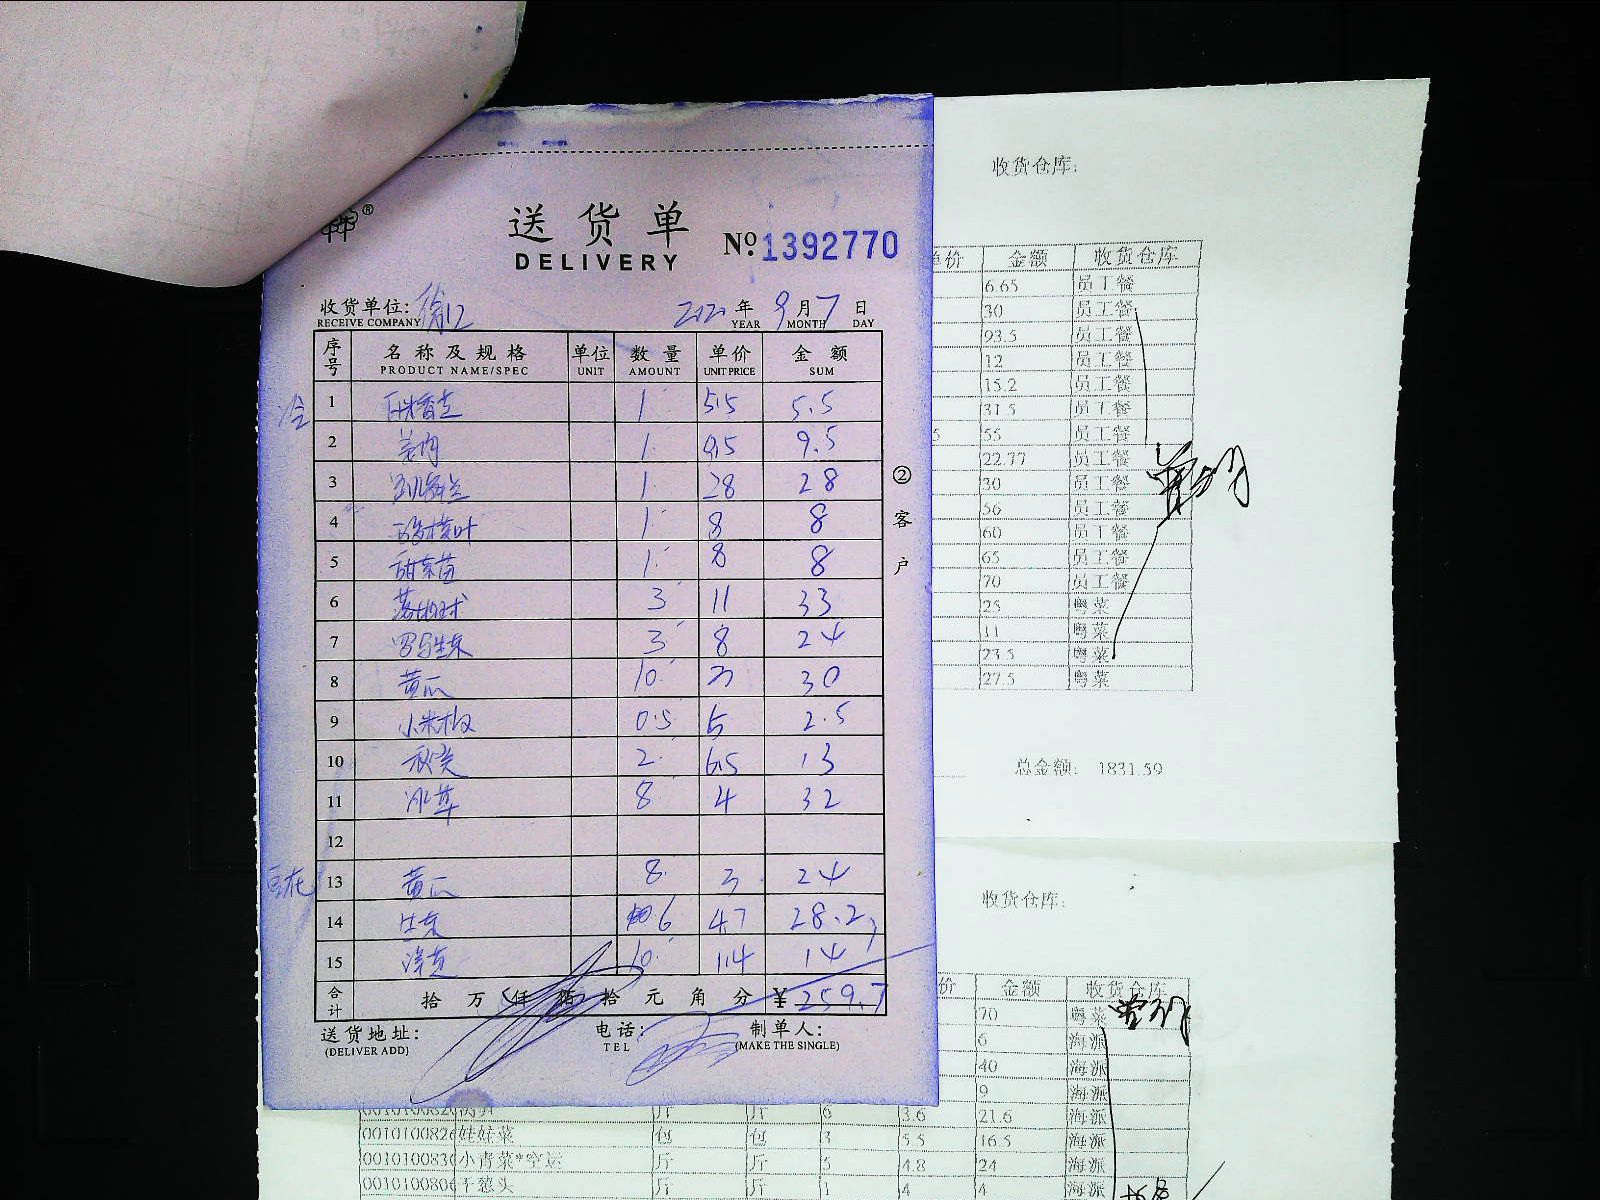 送货单
DELIVERY
№ 1392770
收货单位: 徐汇 2020年9月7日
RECEIVE COMPANY YEAR MONTH DAY
序号 名称及规格 单位 数量 单价 金额
PRODUCT NAME/SPEC UNIT AMOUNT UNIT PRICE SUM
冷
1 1 5.5 5.5
2 1 9.5 9.5
3 1 28 28
4 1 8 8
5 甜菜苗 1 8 8
6 3 11 33
7 罗马生菜 3 8 24
8 黄瓜 10 3 30
9 小米椒 0.5 5 2.5
10 秋葵 2 6.5 13
11 冰草 8 4 32
12
13 黄瓜 8 3 24
14 生菜 6 4.7 28.2
15 10 1.4 14
合计 拾万仟佰拾元角分 ¥259.7
送货地址: 电话: 制单人:
(DELIVER ADD) TEL (MAKE THE SINGLE)
②客户
收货仓库:
单价 金额 收货仓库
6.65 员工餐
30 员工餐
93.5 员工餐
12 员工餐
15.2 员工餐
31.5 员工餐
5 55 员工餐
22.77 员工餐
30 员工餐
56 员工餐
60 员工餐
65 员工餐
70 员工餐
25 粤菜
11 粤菜
23.5 粤菜
27.5 粤菜
总金额: 1831.59
收货仓库:
价 金额 收货仓库
70 粤菜
6 海派
40 海派
9 海派
斤 斤 6 3.6 21.6 海派
娃娃菜 包 包 3 5.5 16.5 海派
小青菜*空运 斤 斤 5 4.8 24 海派
干葱头 斤 斤 1 4 4 海派